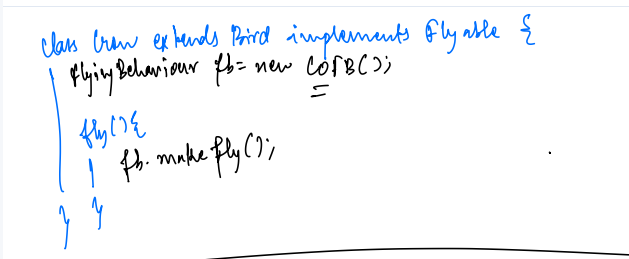 class Crow extends Bird implements Flyable {
FlyingBehaviour fb = new COFB();
fly(){
fb.makefly();
}
}